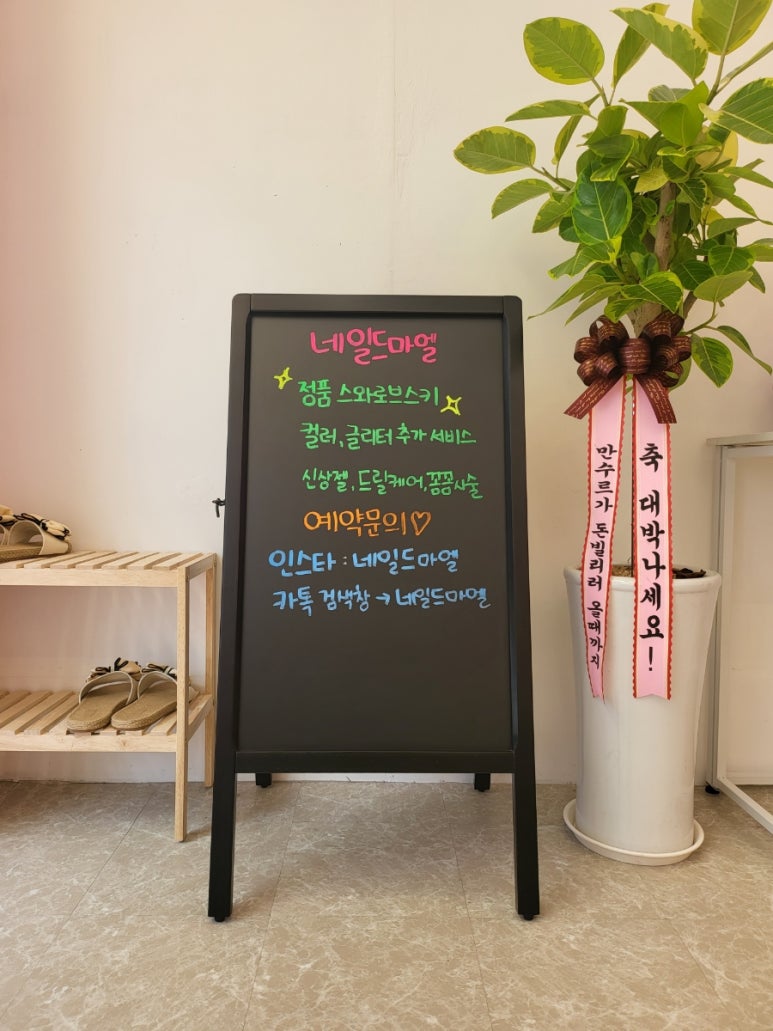 네일드마엘
정품 스와로브스키
컬러, 글리터 추가 서비스
신상젤, 드릴케어, 꼼꼼시술
예약문의♡
인스타 : 네일드마엘
카톡 검색창 → 네일드마엘
만수르가 돈빌리러 올때까지
축 대박나세요!